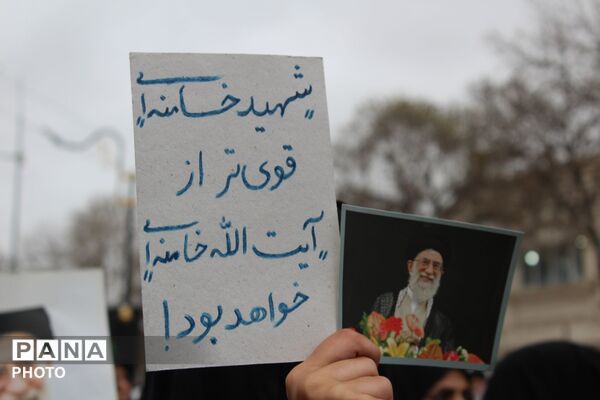 «شهید خامنه‌ای»
قوی‌تر از
«آیت الله خامنه‌ای»
خواهد بود!
PANA
PHOTO